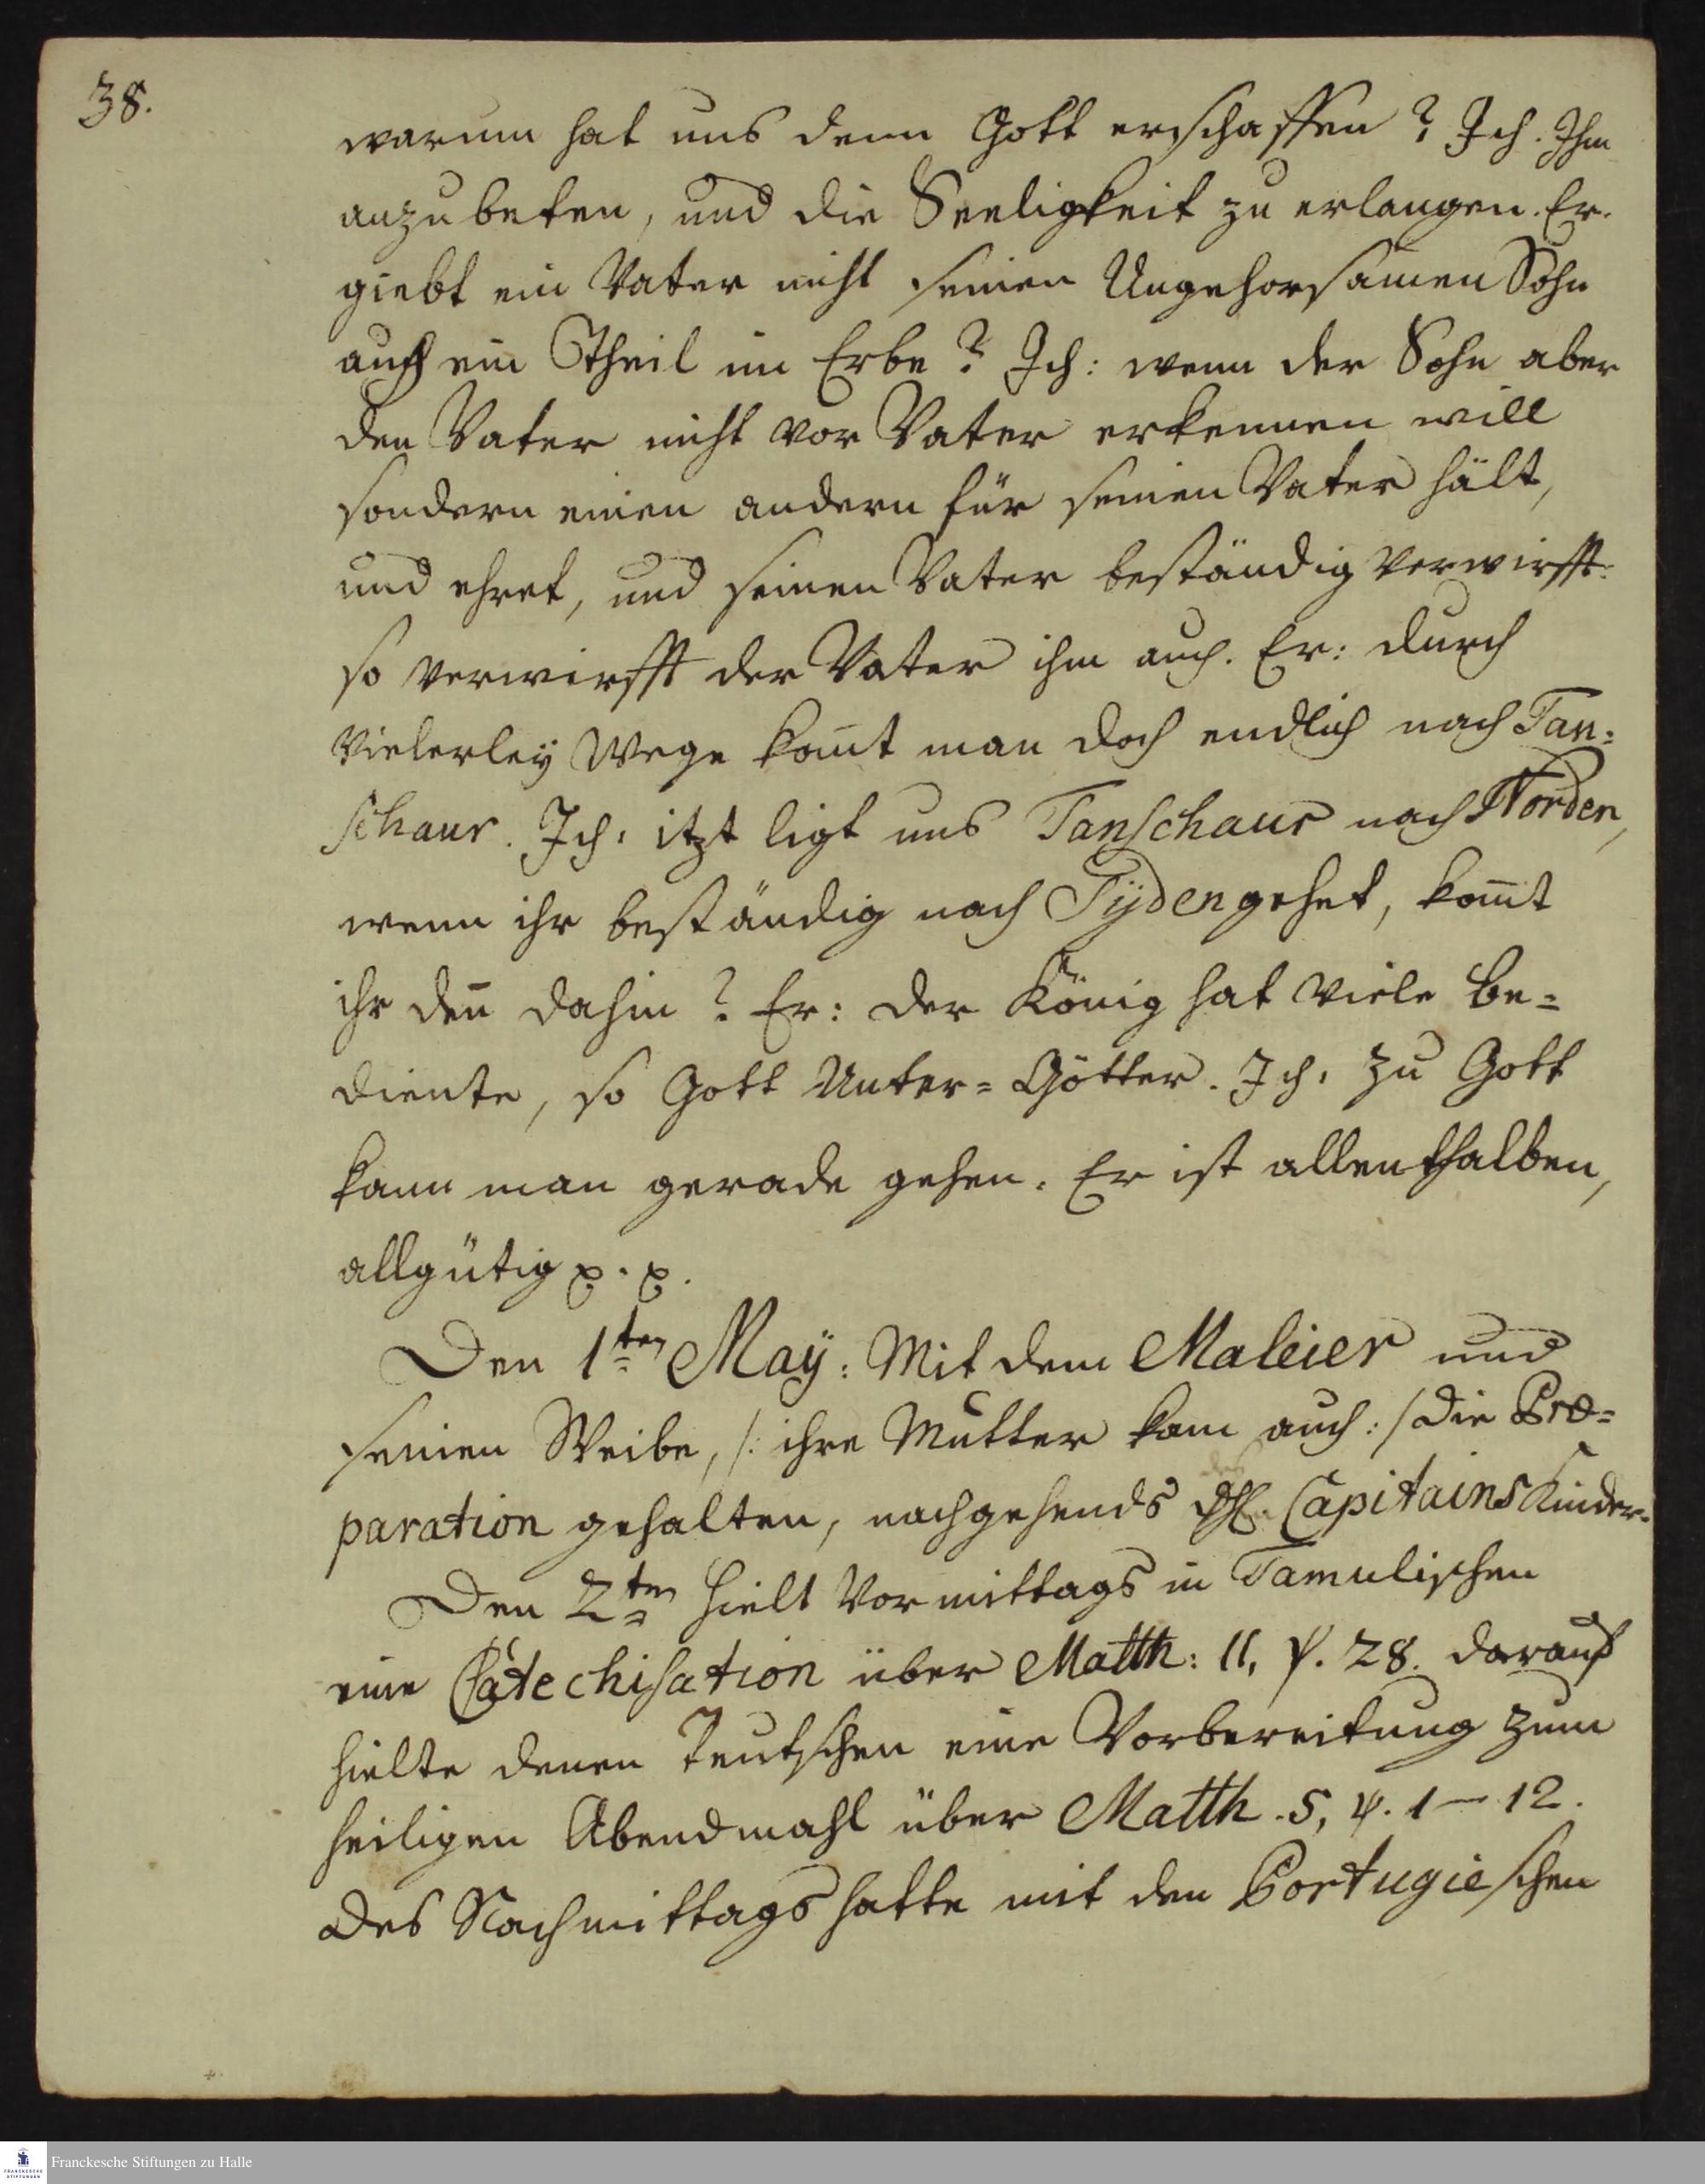 38.
warum hat uns denn Gott erschaffen? Ich. Ihm
anzubeten, und die Seeligkeit zu erlangen. Er.
giebt ein Vater nicht seinen Ungehorsamen Sohn
auch ein Theil im Erbe? Ich: wenn der Sohn aber
den Vater nicht vor Vater erkennen will
sondern einen andern für seinen Vater hält,
und ehret, und seinen Vater beständig verwirfft.
so verwirfft der Vater ihm auch. Er: durch
vielerley Wege kom̄t man doch endlich nach Tan=
schaur. Ich: itzt ligt uns Tanschaur nach Norden,
wenn ihr beständig nach Süden gehet, kom̄t
ihr den̄ dahin? Er: der König hat viele Be=
diente, so Gott Unter=Götter. Ich: zu Gott
kann man gerade gehen. Er ist allenthalben,
allgütig p. p.
Den 1ten May: Mit dem Maleier und
seinen Weibe, /: ihre Mutter kam auch :/ die Præ=
paration gehalten, nachgehends des Capitains Kinder.
Den 2ten hielt Vormittags in Tamulischen
eine Catechisation über Matth: 11, V. 28. darauf
hielte denen Teutschen eine Vorbereitung zum
heiligen Abendmahl über Matth. 5, V. 1–12.
Des Nachmittags hatte mit den Portugieschen
Franckesche Stiftungen zu Halle